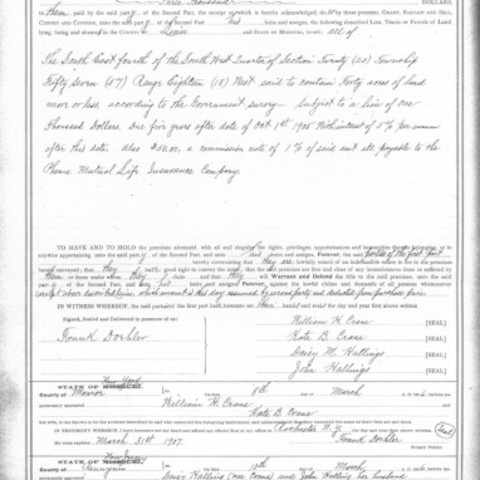 Three Thousand DOLLARS,
to them paid by the said party of the Second Part, the receipt of which is hereby acknowledged, do by these presents, GRANT, BARGAIN AND SELL,
CONVEY AND CONFIRM, unto the said party of the Second Part, his heirs and assigns, the following described Lots, Tracts or Parcels of Land
lying, being and situate in the COUNTY OF Linn and STATE OF MISSOURI, to-wit: all of
The South East fourth of the South West Quarter of Section Twenty (20) Township
Fifty seven (57) Range Eighteen (18) West said to contain Forty acres of land
more or less according to the Government survey - subject to a lien of one
Thousand Dollars, Due five years after date of Oct 1st 1905 With interest of 5% per annum
after this date. Also $50.00, a commission note of 1% of said and all payable to the
Phenix Mutual Life Insurance Company.
TO HAVE AND TO HOLD the premises aforesaid, with all and singular the rights, privileges, appurtenances and immunities thereto belonging, or in
anywise appertaining unto the said party of the Second Part, and unto his heirs and assigns, Forever, the said parties of the first part
hereby covenanting that they are lawfully seized of an indefeasible estate in fee in the premises
herein conveyed; that they have good right to convey the same; that the said premises are free and clear of any incumbrances done or suffered by
them or those under whom they claim and that they will Warrant and Defend the title to the said premises unto the said
party of the Second Part, and unto his heirs and assigns, Forever, against the lawful claims and demands of all persons whomsoever
except above described lien, which amount is this day assumed by second party and deducted from purchase price
IN WITNESS WHEREOF, The said parties of the first part have hereunto set their hands and seals the day and year first above written
Signed, Sealed and Delivered in presence of:
Frank Doehler
William H. Crane [SEAL]
Kate B. Crane [SEAL]
Daisy M. Hallings [SEAL]
John Hallings [SEAL]
New York
STATE OF MISSOURI,
County of Monroe On this 8th day of March before me
personally appeared William H. Crane
Kate B. Crane
his wife, to me known to be the persons described in and who executed the foregoing instrument, and acknowledged that they executed the same as their free act and deed.
IN TESTIMONY WHEREOF, I have hereunto set my hand and affixed my official seal at my office in Rochester N.Y. the day and year first above written.
My term expires March 31st 1907. Frank Doehler
Seal
Notary Public.
New Jersey
STATE OF MISSOURI,
County of On this 10th day of March
Daisy Halling (nee Crane) and John Halling her husband